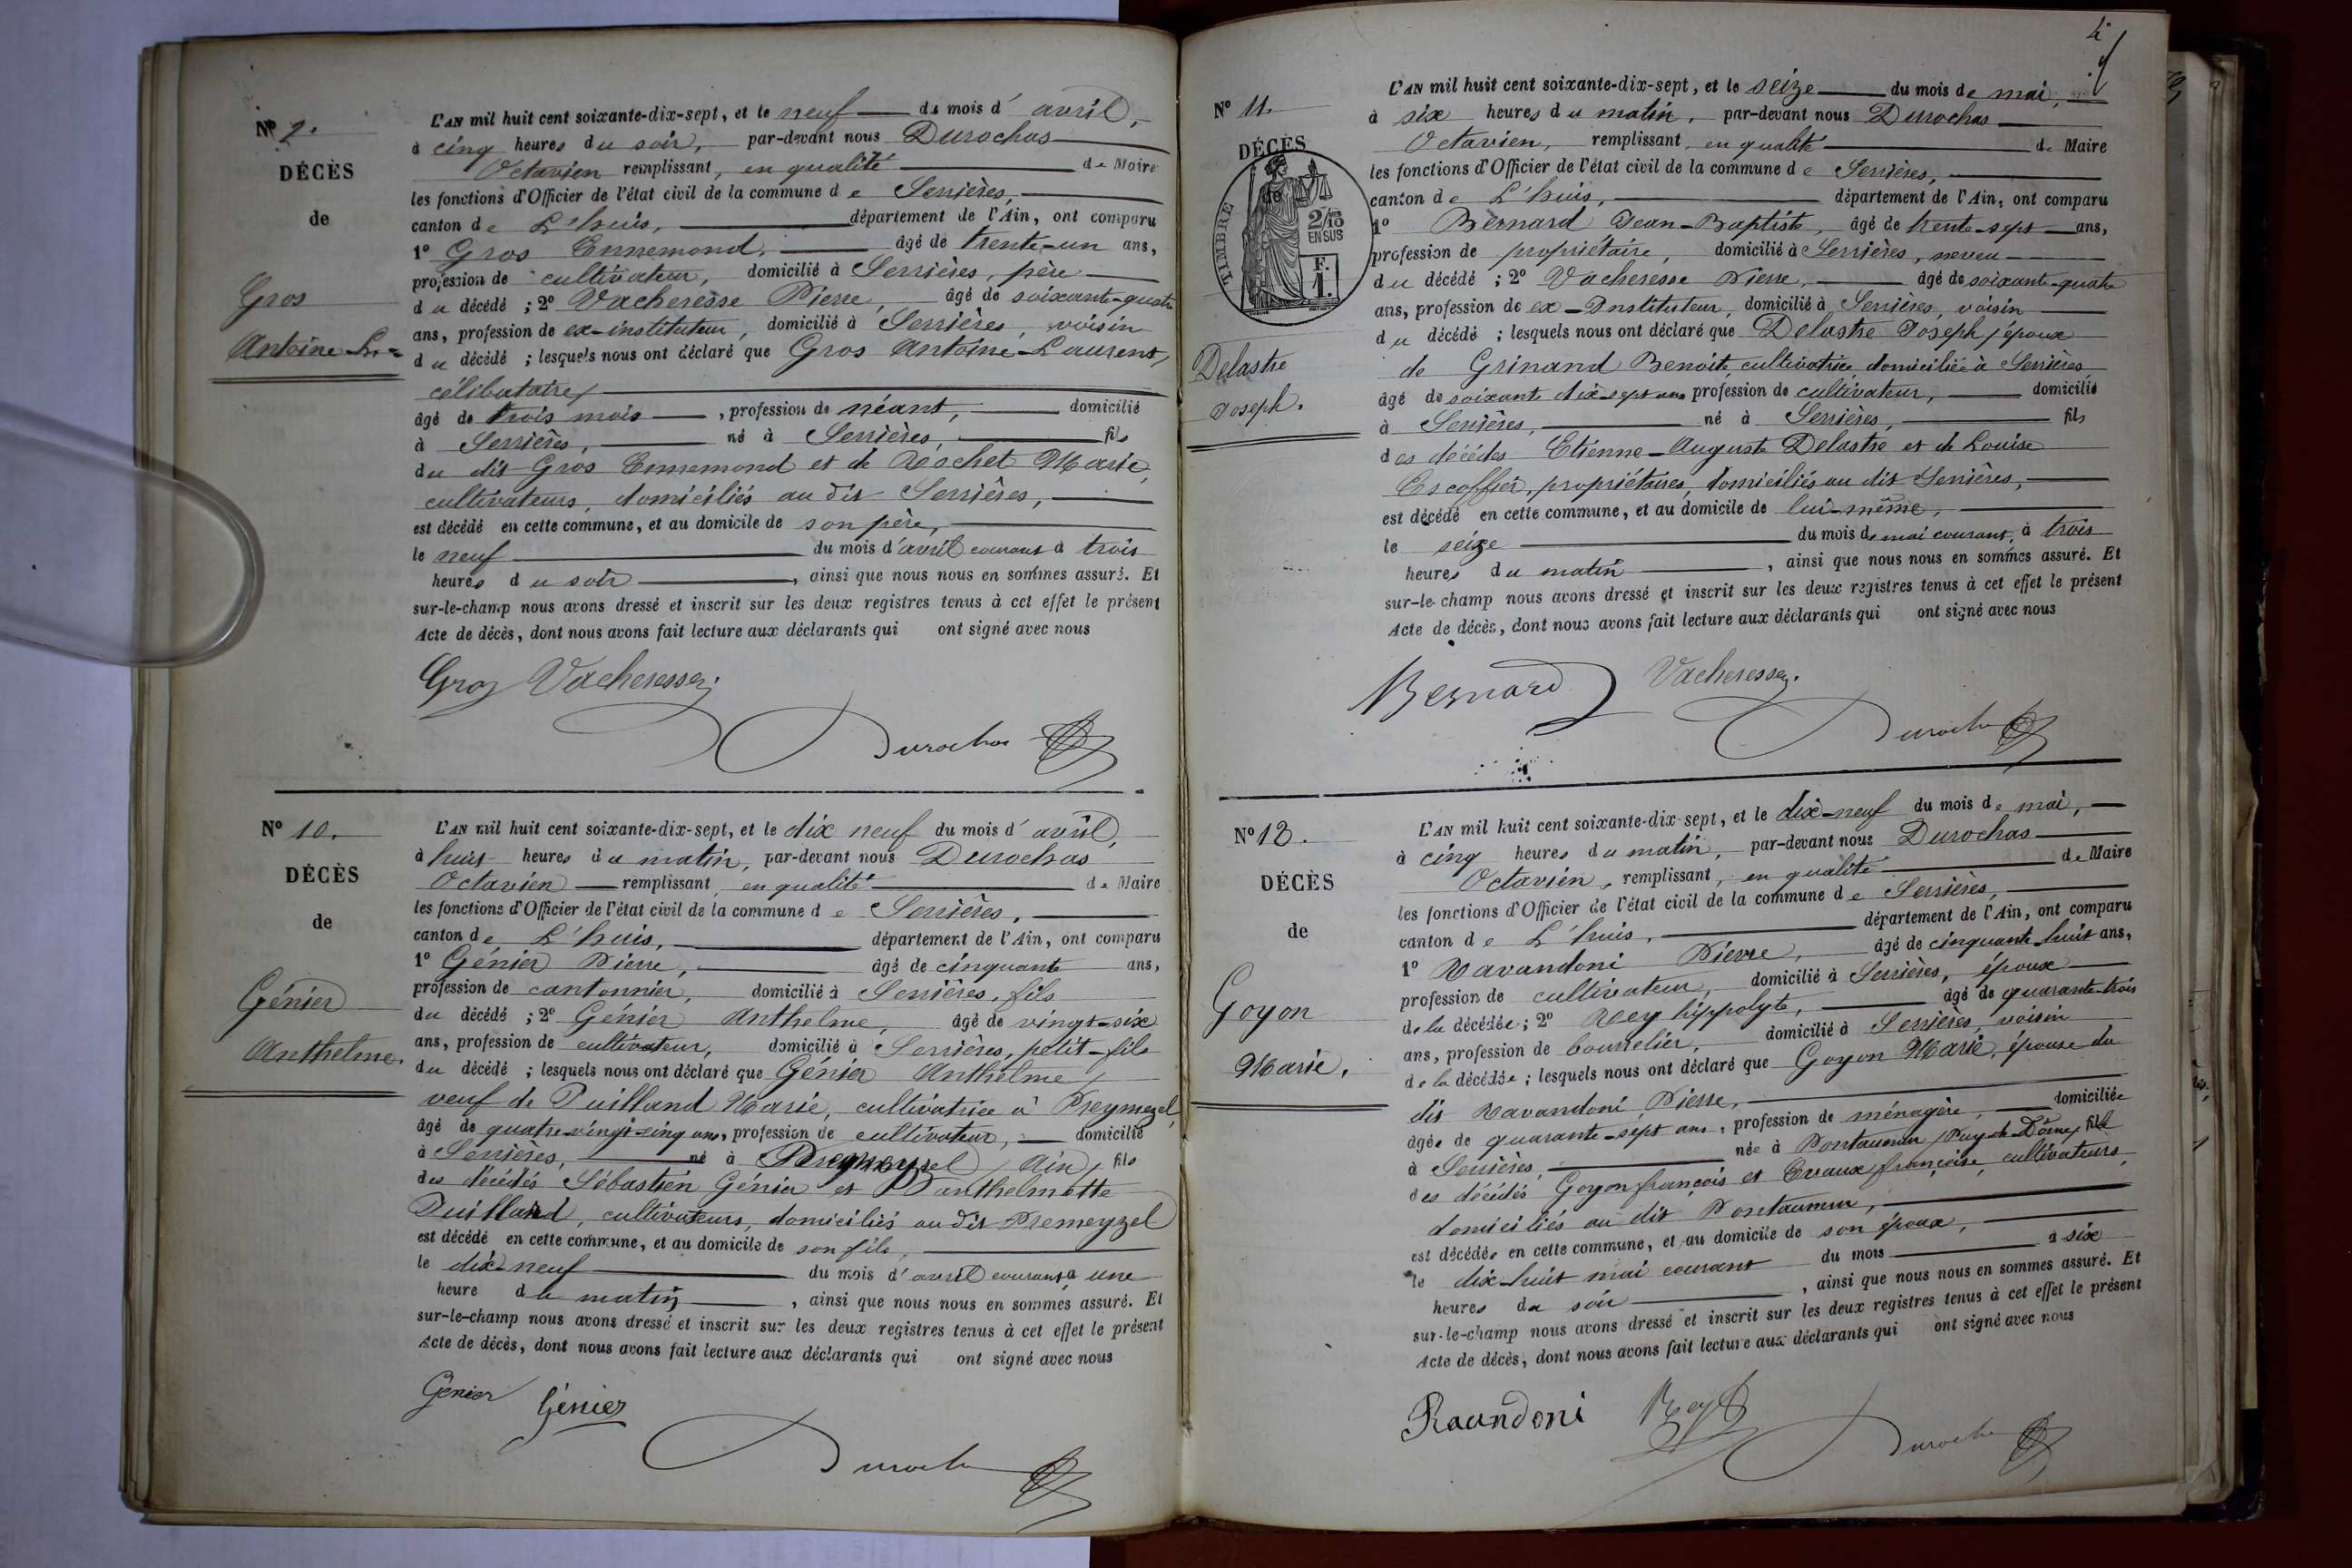 Nº 9.
DÉCÈS
de
Gros
Antoine-Lt=
L'AN mil huit cent soixante-dix-sept, et le neuf du mois d'avril,
à cinq heures du soir, par-devant nous Durochas
Octavien remplissant, en qualité de Maire
les fonctions d'Officier de l'état civil de la commune de Serrières,
canton de L'huis, département de l'Ain, ont comparu
1º Gros Ennemond, âgé de trente-un ans,
profession de cultivateur, domicilié à Serrières, père
du décédé ; 2º Vacheresse Pierre, âgé de soixante-quatre
ans, profession de ex-instituteur, domicilié à Serrières, voisin
du décédé ; lesquels nous ont déclaré que Gros Antoine-Laurent,
célibataire,
âgé de trois mois, profession de néant, domicilié
à Serrières, né à Serrières, fils
du dit Gros Ennemond et de Rochet Marie,
cultivateurs, domiciliés au dit Serrières,
est décédé en cette commune, et au domicile de son père,
le neuf du mois d'avril courant à trois
heures du soir, ainsi que nous nous en sommes assuré. Et
sur-le-champ nous avons dressé et inscrit sur les deux registres tenus à cet effet le présent
Acte de décès, dont nous avons fait lecture aux déclarants qui ont signé avec nous
Gros Vacheresse
Durochas
Nº 10.
DÉCÈS
de
Génier
Anthelme.
L'AN mil huit cent soixante-dix-sept, et le dix neuf du mois d'avril,
à huit heures du matin, par-devant nous Durochas
Octavien remplissant en qualité de Maire
les fonctions d'Officier de l'état civil de la commune de Serrières,
canton de L'huis, département de l'Ain, ont comparu
1º Génier Pierre, âgé de cinquante ans,
profession de cantonnier, domicilié à Serrières, fils
du décédé ; 2º Génier Anthelme, âgé de vingt-six
ans, profession de cultivateur, domicilié à Serrières, petit-fils
du décédé ; lesquels nous ont déclaré que Génier Anthelme,
veuf de Puilland Marie, cultivatrice à Preymezel
âgé de quatre-vingt-cinq ans, profession de cultivateur, domicilié
à Serrières, né à (Ain) fils
des décédés Sébastien Génier et anthelmette
Puilland, cultivateurs, domiciliés au dit Premeyzel
est décédé en cette commune, et au domicile de son fils,
le dix-neuf du mois d'avril courant à une
heure du matin, ainsi que nous nous en sommes assuré. Et
sur-le-champ nous avons dressé et inscrit sur les deux registres tenus à cet effet le présent
Acte de décès, dont nous avons fait lecture aux déclarants qui ont signé avec nous
Génier Génier
Durochas
4
Nº 11.
DÉCÈS
de
TIMBRE
2/10 EN SUS
F.
1.
Delastre
Joseph.
L'AN mil huit cent soixante-dix-sept, et le seize du mois de mai,
à six heures du matin, par-devant nous Durochas
Octavien, remplissant, en qualité de Maire
les fonctions d'Officier de l'état civil de la commune de Serrières,
canton de L'huis, département de l'Ain, ont comparu
1º Bernard Jean-Baptiste, âgé de trente-sept ans,
profession de propriétaire, domicilié à Serrières, neveu
du décédé ; 2º Vacheresse Pierre, âgé de soixante-quatre
ans, profession de ex-Instituteur, domicilié à Serrières, voisin
du décédé ; lesquels nous ont déclaré que Delastre Joseph, époux
de Grinand Benoite, cultivatrice, domiciliée à Serrières
âgé de soixante dix-sept ans profession de cultivateur, domicilié
à Serrières, né à Serrières, fils
des décédés Etienne-Auguste Delastre et de Louise
Escoffier, propriétaires, domiciliés au dit Serrières,
est décédé en cette commune, et au domicile de lui-même,
le seize du mois de mai courant, à trois
heures du matin, ainsi que nous nous en sommes assuré. Et
sur-le-champ nous avons dressé et inscrit sur les deux registres tenus à cet effet le présent
Acte de décès, dont nous avons fait lecture aux déclarants qui ont signé avec nous
Bernard Vacheresse
Durochas
Nº 12.
DÉCÈS
de
Goyon
Marie.
L'AN mil huit cent soixante-dix-sept, et le dix-neuf du mois de mai,
à cinq heures du matin, par-devant nous Durochas
Octavien, remplissant, en qualité de Maire
les fonctions d'Officier de l'état civil de la commune de Serrières,
canton de L'huis, département de l'Ain, ont comparu
1º Ravandoni Pierre, âgé de cinquante-huit ans,
profession de cultivateur, domicilié à Serrières, époux
de la décédée ; 2º Rey hippolyte, âgé de quarante-trois
ans, profession de bourrelier, domicilié à Serrières, voisin
de la décédée ; lesquels nous ont déclaré que Goyon Marie, épouse du
dit Ravandoni Pierre,
âgée de quarante-sept ans, profession de ménagère, domiciliée
à Serrières, née à Pontaumur (Puy-de-Dôme) fille
des décédés Goyon françois et Evaux françoise, cultivateurs,
domiciliés au dit Pontaumur,
est décédée en cette commune, et au domicile de son époux,
le dix-huit mai courant du mois à six
heures du soir, ainsi que nous nous en sommes assuré. Et
sur-le-champ nous avons dressé et inscrit sur les deux registres tenus à cet effet le présent
Acte de décès, dont nous avons fait lecture aux déclarants qui ont signé avec nous
Raundoni Rey
Durochas